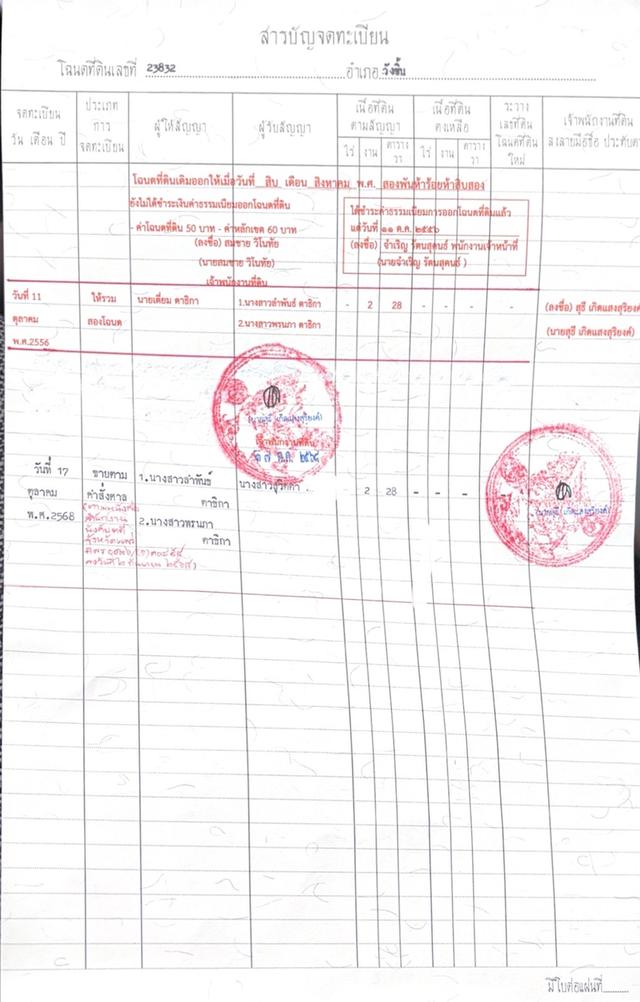 สารบัญจดทะเบียน
โฉนดที่ดินเลขที่ 23832 อำเภอ วังชิ้น
จดทะเบียน วัน เดือน ปี
ประเภทการจดทะเบียน
ผู้ให้สัญญา
ผู้รับสัญญา
เนื้อที่ดินตามสัญญา
ไร่ งาน ตารางวา
เนื้อที่ดินคงเหลือ
ไร่ งาน ตารางวา
ระวาง เลขที่ดิน โฉนดที่ดินใหม่
เจ้าพนักงานที่ดิน
ลงลายมือชื่อ ประทับตรา
โฉนดที่ดินเดิมออกให้เมื่อวันที่ สิบ เดือน สิงหาคม พ.ศ. สองพันห้าร้อยห้าสิบสอง
ยังไม่ได้ชำระเงินค่าธรรมเนียมออกโฉนดที่ดิน
- ค่าโฉนดที่ดิน 50 บาท - ค่าหลักเขต 60 บาท
(ลงชื่อ) สมชาย วิโนทัย
(นายสมชาย วิโนทัย)
เจ้าพนักงานที่ดิน
ได้ชำระค่าธรรมเนียมการออกโฉนดที่ดินแล้ว
แต่วันที่ ๑๑ ต.ค. ๒๕๕๖
(ลงชื่อ) จำเริญ รัตนสุคนธ์ พนักงานเจ้าหน้าที่
(นายจำเริญ รัตนสุคนธ์ )
วันที่ 11 ให้รวม นายเตี่ยม ตาธิกา 1.นางสาวลำพันธ์ ตาธิกา - 2 28 - - - - (ลงชื่อ) สุธี เกิดแสงสุริยงค์
ตุลาคม สองโฉนด 2.นางสาวพรนภา ตาธิกา (นายสุธี เกิดแสงสุริยงค์)
พ.ศ.2556
เจ้าพนักงานที่ดิน
๑๗ ต.ค. ๒๕๖๘
วันที่ 17 ขายตาม 1.นางสาวลำพันธ์ นางสาว - 2 28 - - -
ตุลาคม คำสั่งศาล ตาธิกา
พ.ศ.2568 2.นางสาวพรนภา
ตาธิกา
สำนักงาน
บังคับคดี
จังหวัดแพร่
มีใบต่อแผ่นที่